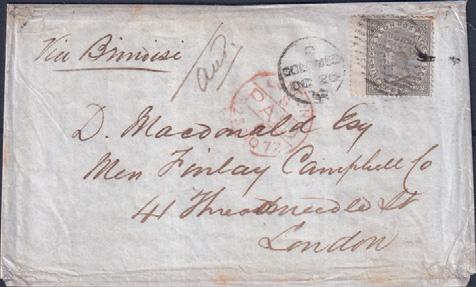 Via Brindisi
PAID
D. Macdonald Esq
Mess Finlay Campbell Co
41 Threadneedle St
London